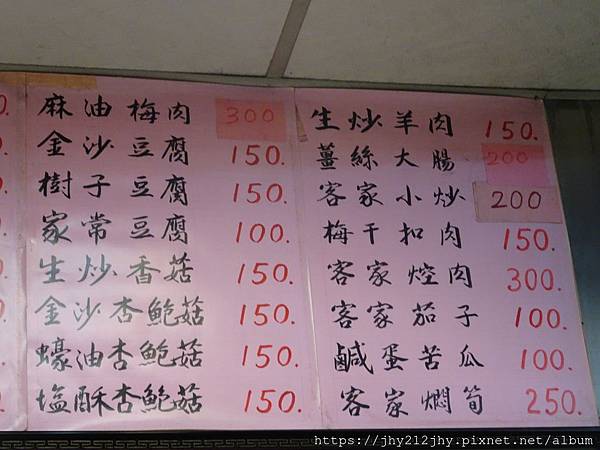 麻油梅肉 300
金沙豆腐 150.
樹子豆腐 150.
家常豆腐 100.
生炒香菇 150.
金沙杏鮑菇 150.
蠔油杏鮑菇 150.
塩酥杏鮑菇 150.
生炒羊肉 150.
薑絲大腸 200
客家小炒 200
梅干扣肉 150.
客家焢肉 300.
客家茄子 100.
鹹蛋苦瓜 100.
客家燜筍 250.
https://jhy212jhy.pixnet.net/album